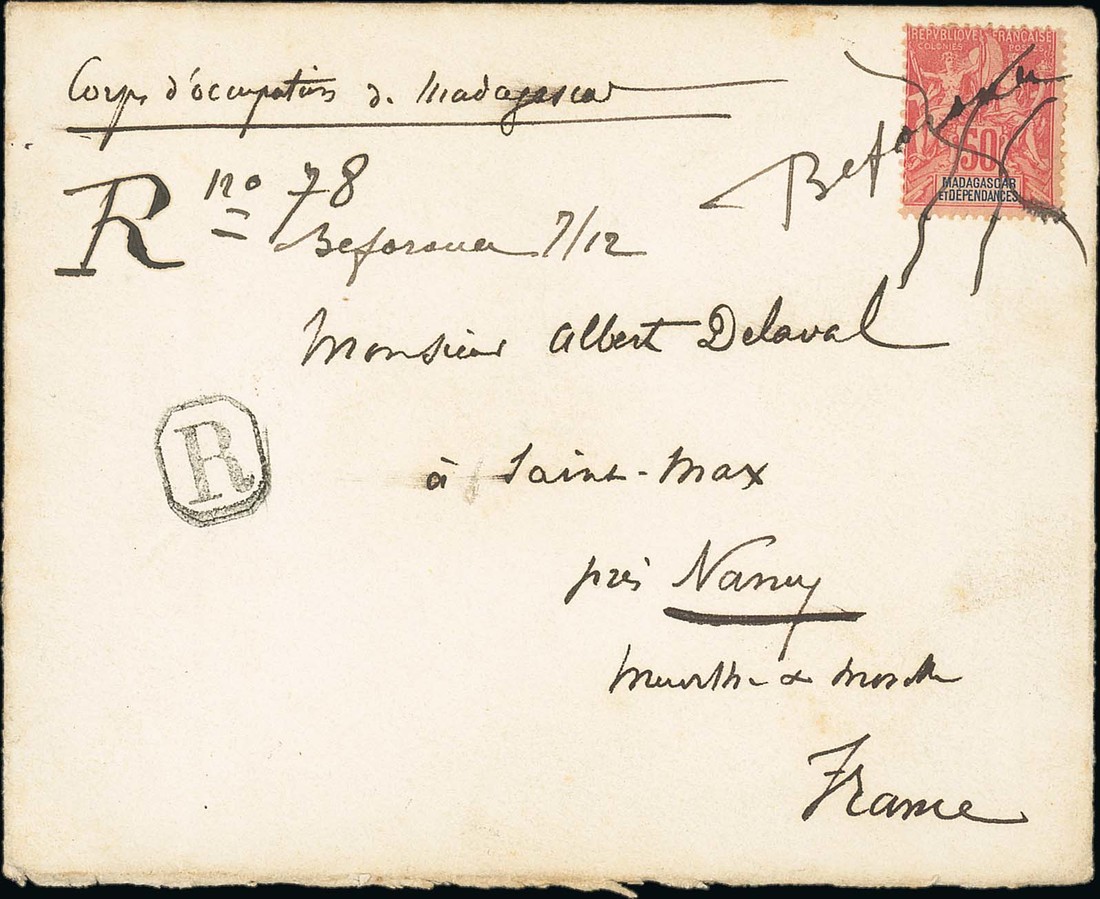 REPVBLIQVE FRANÇAISE
COLONIES POSTES
50
MADAGASCAR
ET DÉPENDANCES
Beforona
Corps d'occupation de Madagascar
R no 78
Beforona 7/12
Monsieur Albert Delaval
R
à Saint-Max
près Nancy
Meurthe & Moselle
France